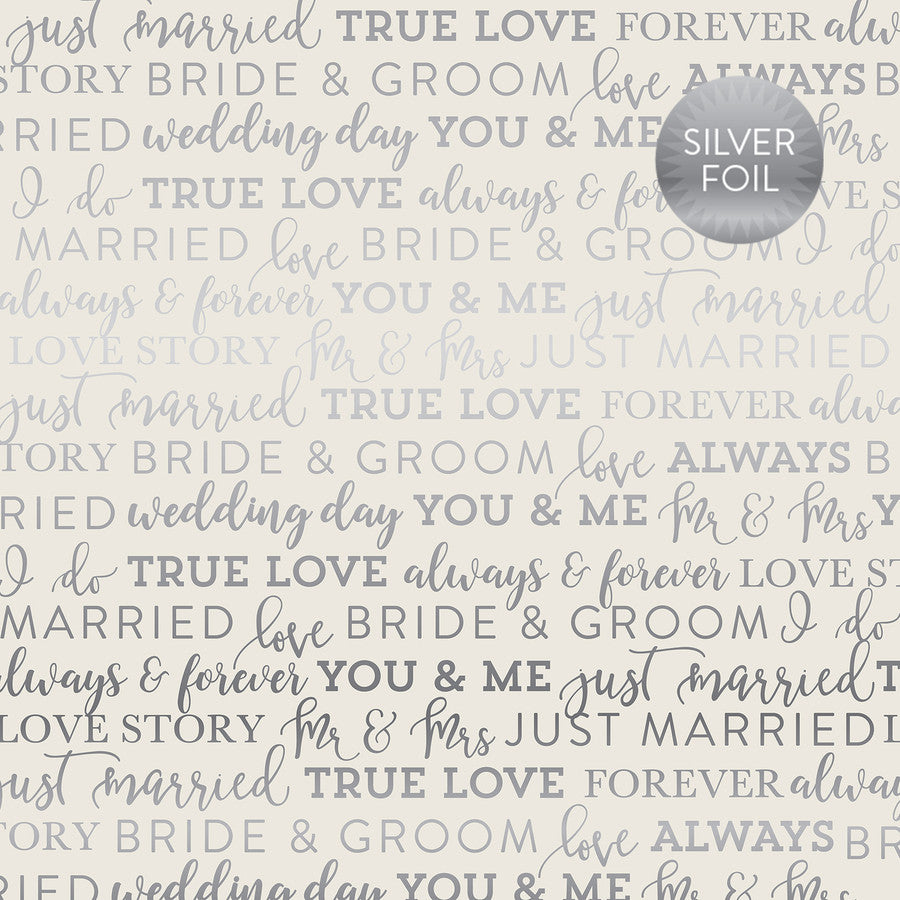 just married TRUE LOVE FOREVER alw
STORY BRIDE & GROOM love ALWAYS B
RRIED wedding day YOU & ME Mrs
SILVER
FOIL
I do TRUE LOVE always & for VE S
MARRIED love BRIDE & GROOM I do
always & forever YOU & ME just married
LOVE STORY Mr & Mrs JUST MARRIED
just married TRUE LOVE FOREVER alwa
TORY BRIDE & GROOM love ALWAYS B
RIED wedding day YOU & ME Mr & Mrs Y
I do TRUE LOVE always & forever LOVE ST
MARRIED love BRIDE & GROOM I do
always & forever YOU & ME just married T
LOVE STORY Mr & Mrs JUST MARRIED L
just married TRUE LOVE FOREVER alway
TORY BRIDE & GROOM love ALWAYS BR
RIED wedding day YOU & ME Mr & Mrs